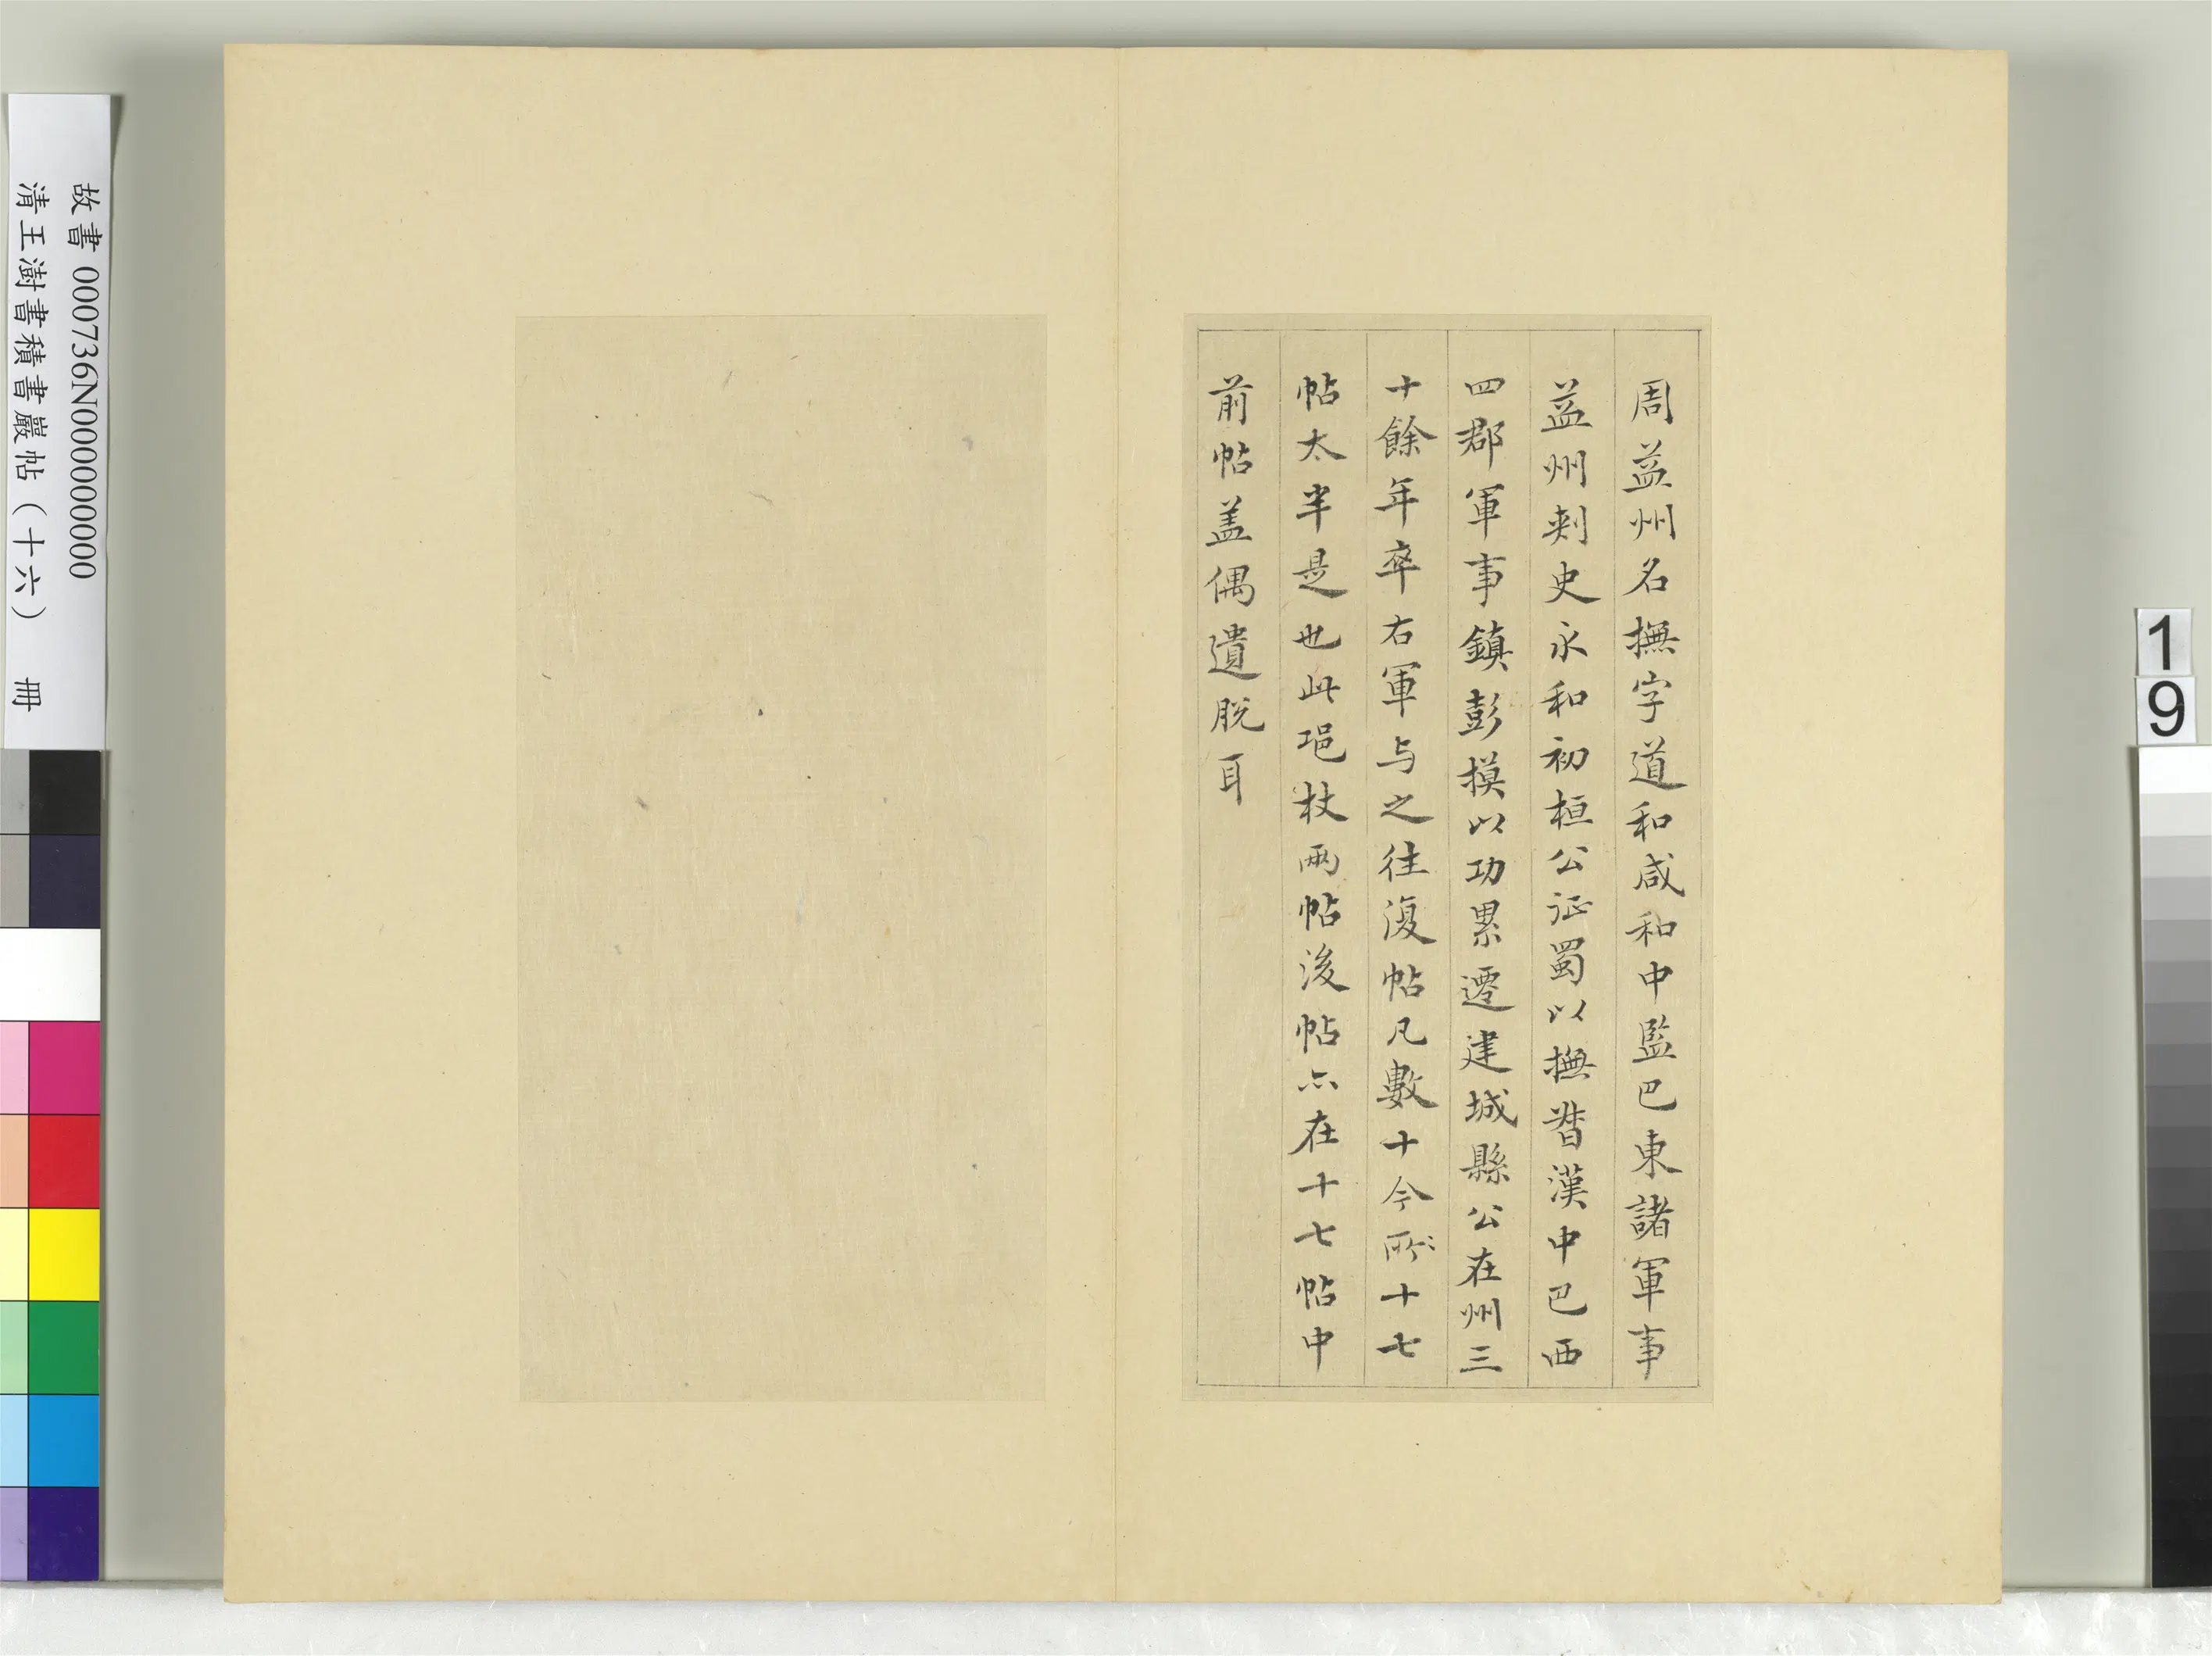 周益州名撫字道和咸和中監巴東諸軍事
益州刺史永和初桓公征蜀以撫督漢中巴西
四郡軍事鎮彭摸以功累遷建城縣公在州三
十餘年卒右軍与之往復帖凡數十今所十七
帖太半是也此卭杖兩帖後帖亦在十七帖中
前帖盖偶遺脫耳
故書 000736N000000000
清王澍書積書巖帖（十六） 冊
19